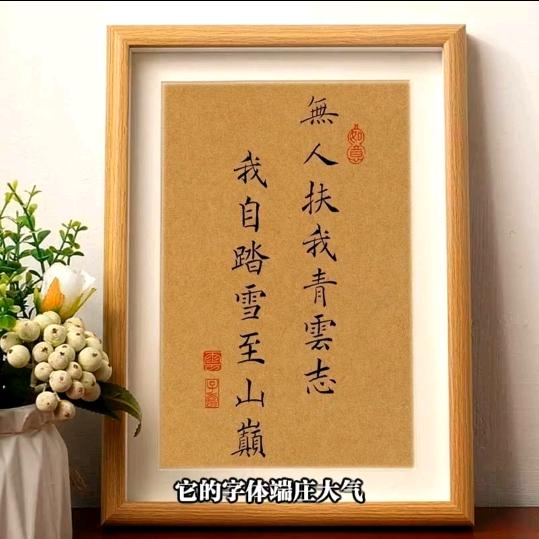 無人扶我青雲志
我自踏雪至山巔
如意
它的字体端庄大气